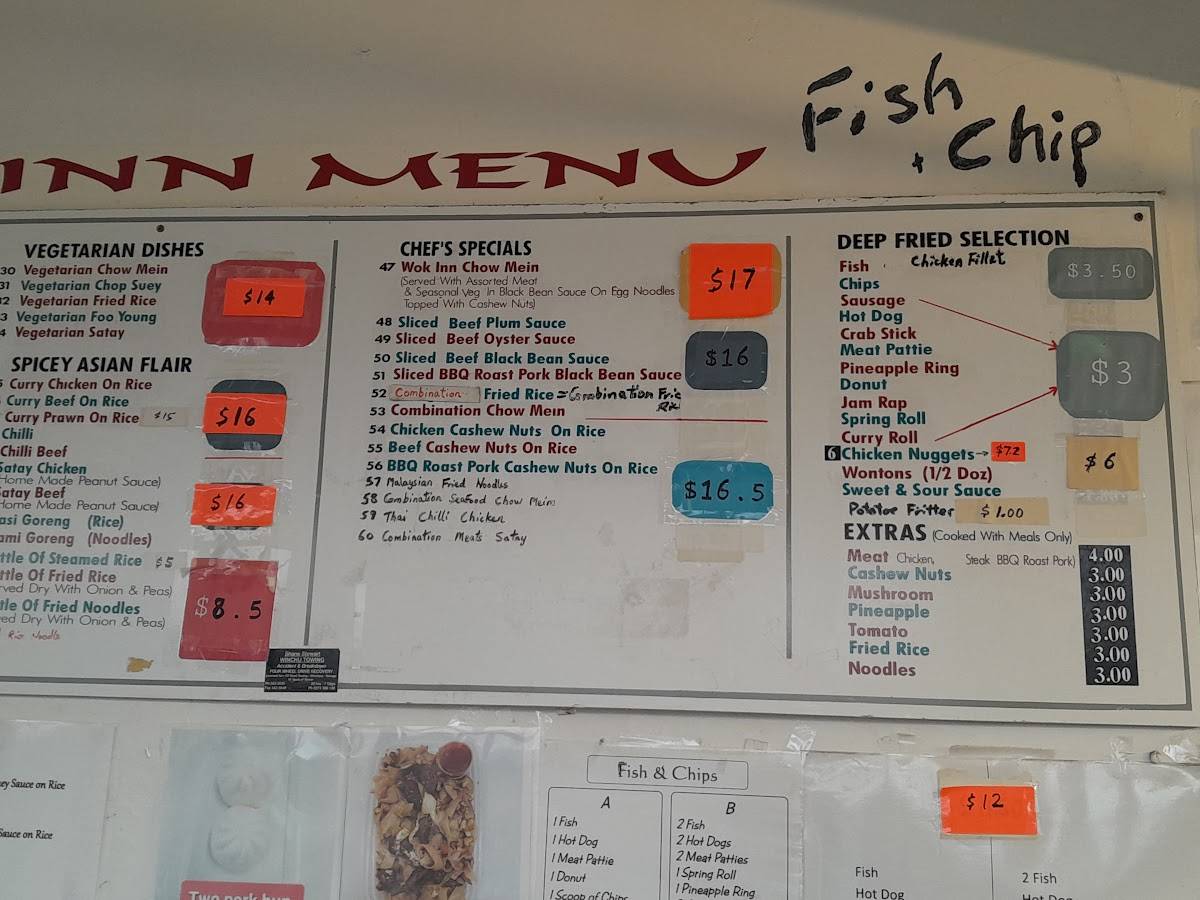 Fish
+ Chip
INN MENU
VEGETARIAN DISHES
30 Vegetarian Chow Mein
31 Vegetarian Chop Suey
2 Vegetarian Fried Rice
3 Vegetarian Foo Young
4 Vegetarian Satay
$14
SPICEY ASIAN FLAIR
Curry Chicken On Rice
Curry Beef On Rice
Curry Prawn On Rice $15
Chilli
Chilli Beef
$16
Satay Chicken
Home Made Peanut Sauce)
Satay Beef
Home Made Peanut Sauce)
asi Goreng (Rice)
ami Goreng (Noodles)
$16
ttle Of Steamed Rice $5
ttle Of Fried Rice
rved Dry With Onion & Peas)
tle Of Fried Noodles
ed Dry With Onion & Peas)
$8.5
CHEF'S SPECIALS
47 Wok Inn Chow Mein
(Served With Assorted Meat
& Seasonal Veg In Black Bean Sauce On Egg Noodles
Topped With Cashew Nuts)
$17
48 Sliced Beef Plum Sauce
49 Sliced Beef Oyster Sauce
50 Sliced Beef Black Bean Sauce
51 Sliced BBQ Roast Pork Black Bean Sauce
52 Combination Fried Rice = Combination Frie
53 Combination Chow Mein
$16
54 Chicken Cashew Nuts On Rice
55 Beef Cashew Nuts On Rice
56 BBQ Roast Pork Cashew Nuts On Rice
57 Malaysian Fried Noodles
58 Combination Seafood Chow Mein
59 Thai Chilli Chicken
60 Combination Meats Satay
$16.5
DEEP FRIED SELECTION
Fish Chicken Fillet
$3.50
Chips
Sausage
Hot Dog
Crab Stick
Meat Pattie
Pineapple Ring
Donut
Jam Rap
Spring Roll
Curry Roll
$3
6 Chicken Nuggets → $7.2
Wontons (1/2 Doz)
$6
Sweet & Sour Sauce
Potatoe Fritter $1.00
EXTRAS (Cooked With Meals Only)
Meat Chicken, Steak BBQ Roast Pork) 4.00
Cashew Nuts 3.00
Mushroom 3.00
Pineapple 3.00
Tomato 3.00
Fried Rice 3.00
Noodles 3.00
Shane Stewart
WINCHU TOWING
Accident & Breakdown
FOUR WHEEL DRIVE RECOVERY
ey Sauce on Rice
Sauce on Rice
Two pork bun
Fish & Chips
A
1 Fish
1 Hot Dog
1 Meat Pattie
1 Donut
1 Scoop of Chips
B
2 Fish
2 Hot Dogs
2 Meat Patties
1 Spring Roll
1 Pineapple Ring
$12
Fish
Hot Dog
2 Fish